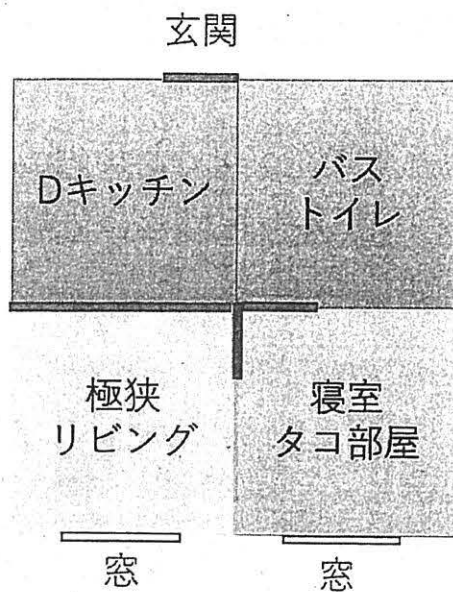 玄関
Dキッチン
バス
トイレ
極狭
リビング
寝室
タコ部屋
窓
窓